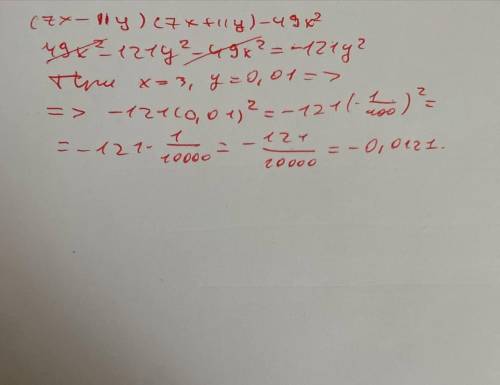 (7x-11y)(7x+11y)-49x²
49x²-121y²-49x²=-121y²
При x=3, y=0,01=>
=> -121(0,01)²=-121(1/100)²=
=-121·1/10000=-121/10000=-0,0121.